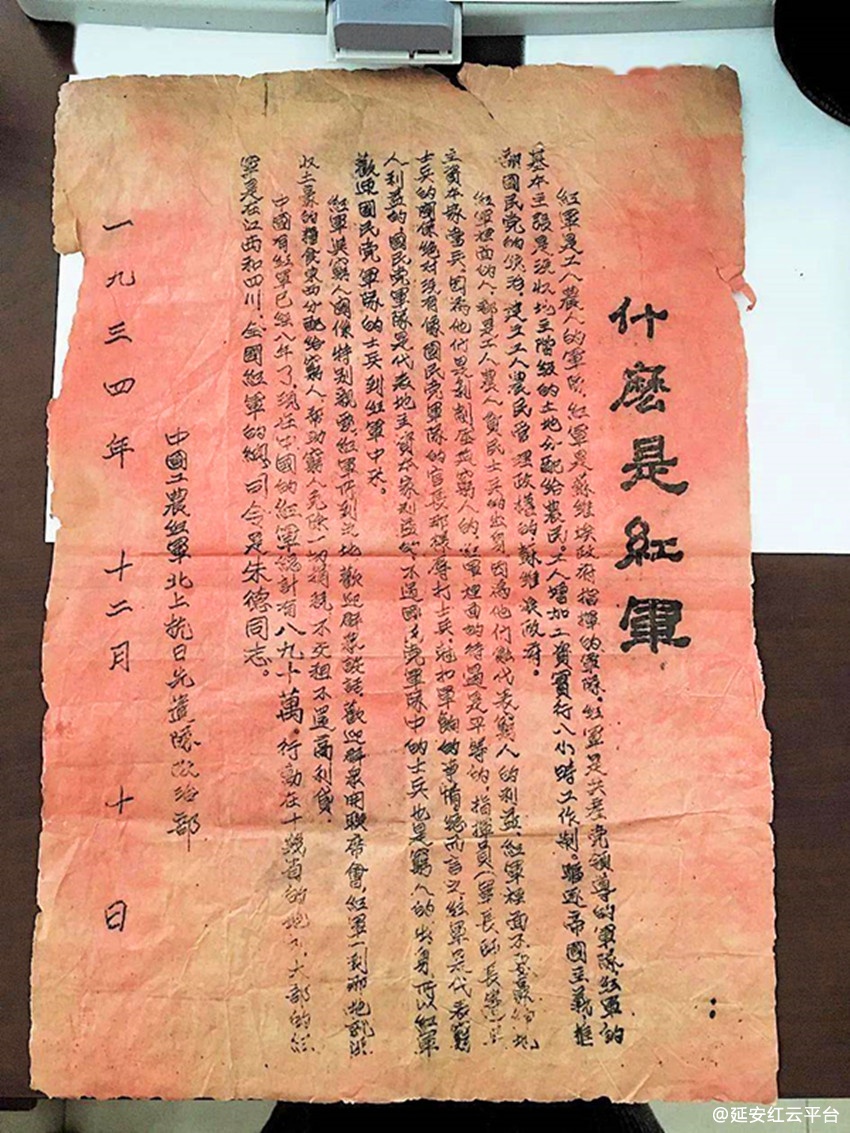 什麽是紅軍
紅軍是工人農人的軍隊,紅軍是蘇維埃政府指揮的軍隊。紅軍是共產党領導的軍隊,紅軍的
基本主張是沒收地主階級的土地分配給農民。工人增加工資實行八小時工作制。驅逐帝國主義,推
翻國民党的統治,建立工人農民管理政權的,蘇維埃政府。
紅軍裡面的人,都是工人農人貧民士兵的出身,因為他們能代表窮人的利益,紅軍裡面不要豪紳地
主資本家當兵,因為他們是剝削壓迫窮人的,紅軍裡面的待遇是平等的,指揮員(軍長師長
士兵的關係絕對沒有像國民党軍隊的官長那樣辱打士兵,尅扣軍餉的事情,總而言之紅軍是代表窮
人利益的,國民党軍隊是代表地主資本家利益的,不過國民党軍隊中的士兵也是窮人的出身,所以紅軍
歡迎國民党軍隊的士兵到紅軍中來。
紅軍與窮人關係特別親密,紅軍所到之地,歡迎群衆談話,歡迎群衆開聯席會,紅軍一到那地就沒
收土豪的糧食東西分配給窮人,幫助窮人免除一切捐稅,不交租不還高利貸。
中國有紅軍已經八年了,現在中國的紅軍總計有八九十萬。行動在十幾省的地方,大部的紅
軍是在江西和四川,全國紅軍的總司令是朱德同志。
中國工農紅軍北上抗日先遣隊政治部
一九三四年 十二月 十日
@延安红云平台